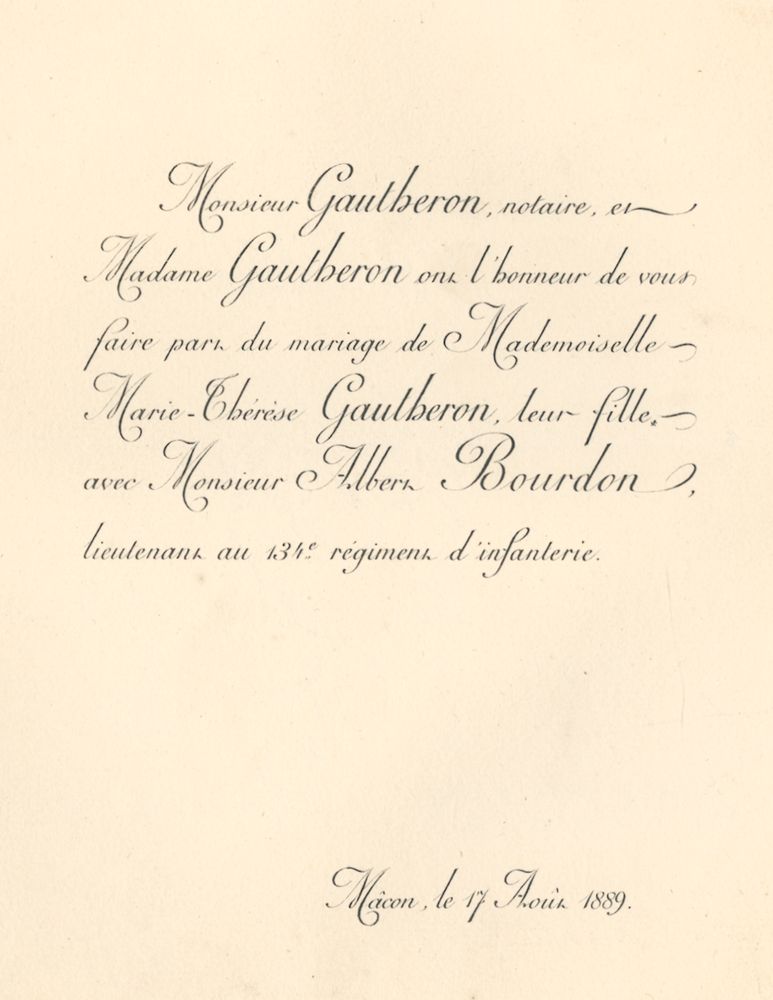 Monsieur Gautheron, notaire, et
Madame Gautheron ont l'honneur de vous
faire part du mariage de Mademoiselle
Marie-Thérèse Gautheron, leur fille,
avec Monsieur Albert Bourdon,
lieutenant au 134e régiment d'infanterie.
Mâcon, le 17 Août 1889.